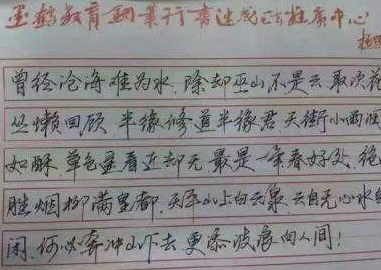 墨韵教育钢笔行书速成班拓展中心
杨
曾经沧海难为水,除却巫山不是云.取次花
丛懒回顾,半缘修道半缘君.天街小雨润
如酥,草色遥看近却无.最是一年春好处,绝
胜烟柳满皇都.天平山上白云泉,云自无心水自
闲.何必奔冲山下去,更添波浪向人间!